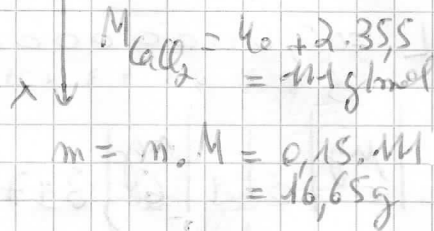 M CaCl₂ = 40 + 2·35,5
= 111 g/mol
m = n · M = 0,15 · 111
= 16,65 g